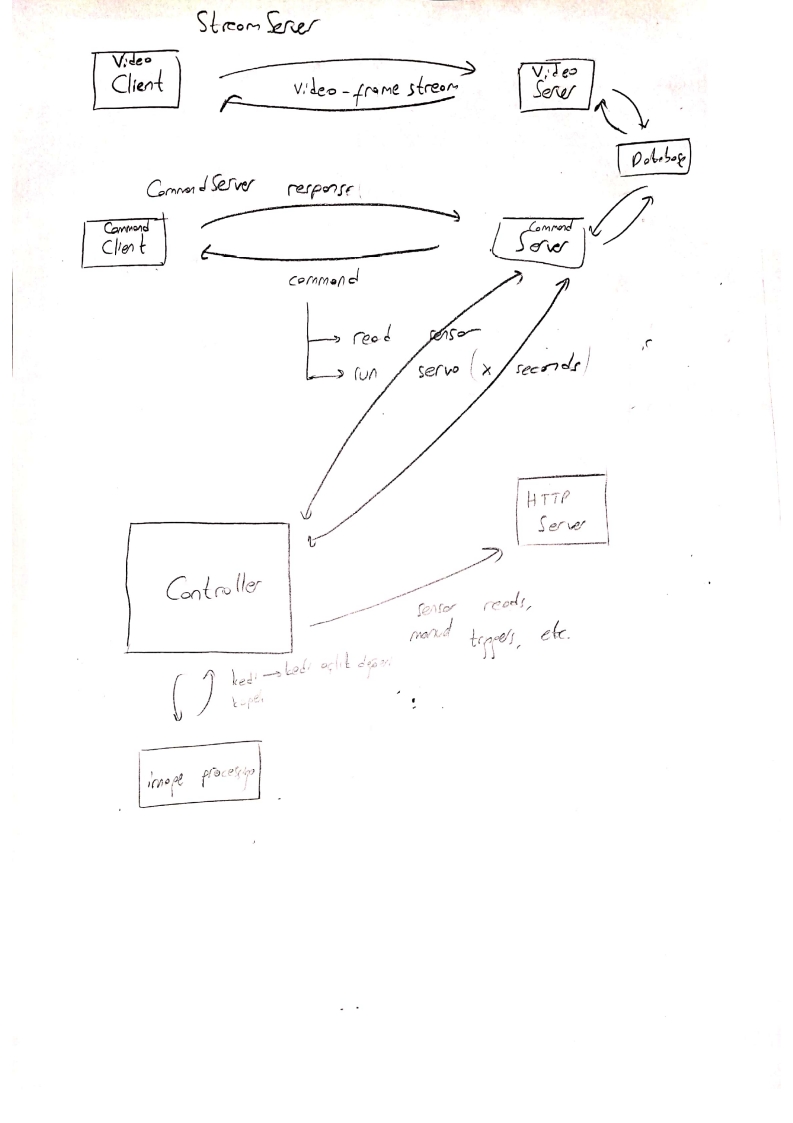 Stream Server
Video
Client
Video-frame stream
Video
Server
Database
Command Server response
Command
Client
Command
Server
command
read sensor
run servo (x seconds)
HTTP
Server
Controller
sensor reads,
manual triggers, etc.
kedi → kedi
image processing